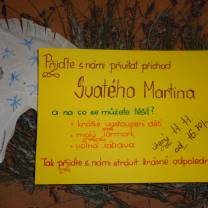 Přijďte s námi přivítat příchod
Svatého Martina
a na co se můžete těšit?
krátké vystoupení dětí
malý jarmark
volná zábava
11. 11.
od 16.
Tak přijďte s námi strávit krásné odpoledne